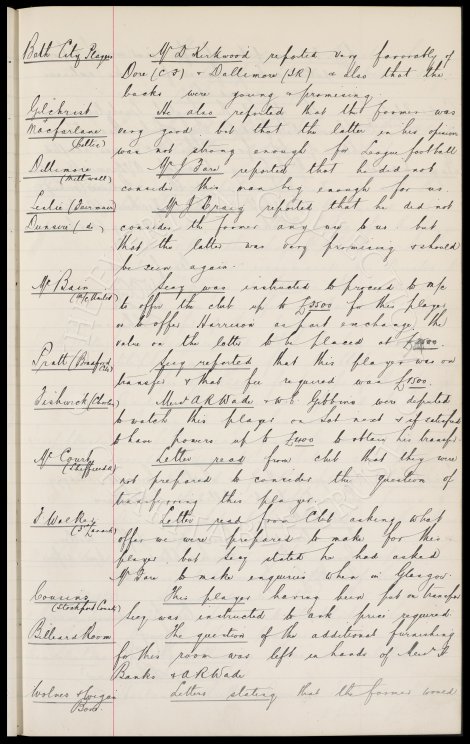 Bath City Players Mr D Kirkwood reported very favorably of
Dore (C.F) & Daltimore (I.R) & also that the
backs were young & promising.
Gilchrist He also reported that the former was
Macfarlane very good but that the latter in his opinion
(Celtic) was not strong enough for League football
Dillimore Mr J Fare reported that he did not
(Millwall) consider this man big enough for us
Leslie ( Mr J Craig reported that he did not
Dunsire (do) consider the former any use to us but
that the latter was very promising & should
be seen again.
Mc Bain Secy was instructed to proceed to M/c
(M/c United) to offer the club up to £3500 for this player
or to offer Harrison as part exchange, the
value on the latter to be placed at
Pratt (Bradford City) Secy reported that this player was on
transfer & that fee required was £1500
Fishwick (Chorley) Messrs A R Wade & W C Gibbins were deputed
to watch this player on Sat next & if satisfied
to have powers up to £400 to obtain his transfer
Mc Court Letter read from club that they were
(Sheffield U) not prepared to consider the question of
transferring this player.
T Walker Letter read from Club asking what
offer we were prepared to make for this
player but Secy stated he had asked
Mr Fare to make enquiries when in Glasgow.
Cousins This player having been put on transfer
(Stockport County) Secy was instructed to ask price required
Billiard Room The question of the additional furnishing
for this room was left in hands of Messrs
Banks & A R Wade
Wolves & Wigan Letters stating that the former would
Boro.